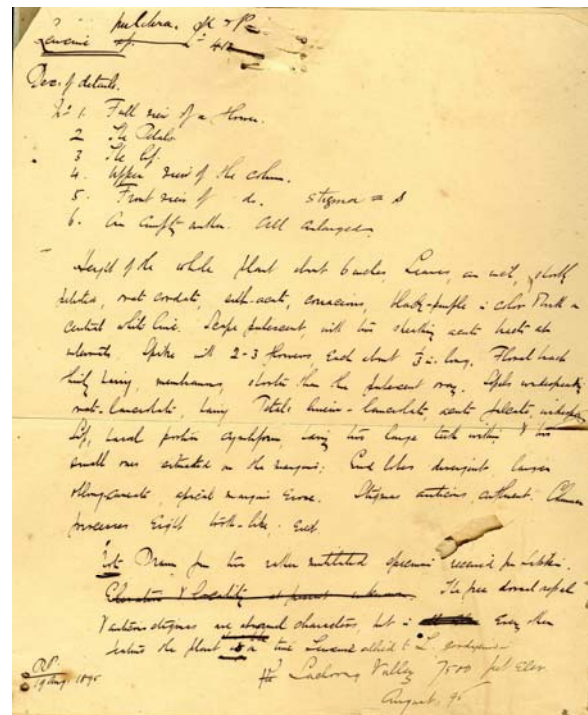 pulchra. K & P
Zeuxine sp. No 412
Des. of details.
No 1. Full view of a flower.
2 The Petals
3 The lip.
4. Upper view of the column.
5. Front view of do. stigma = s
6. An empty anther. All enlarged.
Height of the whole plant about 6 inches, Leaves, shortly
petioled, ovate cordate, sub-acute, coriaceous, black-purple in color with a
central white line. Scape pubescent, with two sheathing acute bracts at
intervals. Spike with 2-3 flowers, each about ½ in. long. Floral bracts
hairy, membranous, shorter than the pubescent ovary. Sepals
ovate-lanceolate, hairy Petals linear-lanceolate, acute falcate,
Lip, basal portion having two large teeth within & two
small ones situated on the margins; End lobes divergent, large
apical margin erose. Stigmas anticous, Column
processes Eight tooth-like, Erect.
Note Drawn from two rather mutilated specimens received from Lachen.
Elevation & locality at present unknown. The free dorsal sepal
& anticous stigmas are characters, but in Every other
feature the plant is a true Zeuxine allied to L.
Lachong Valley 7500 feet Elev.
August, 95
R.P.
19 Aug. 1895